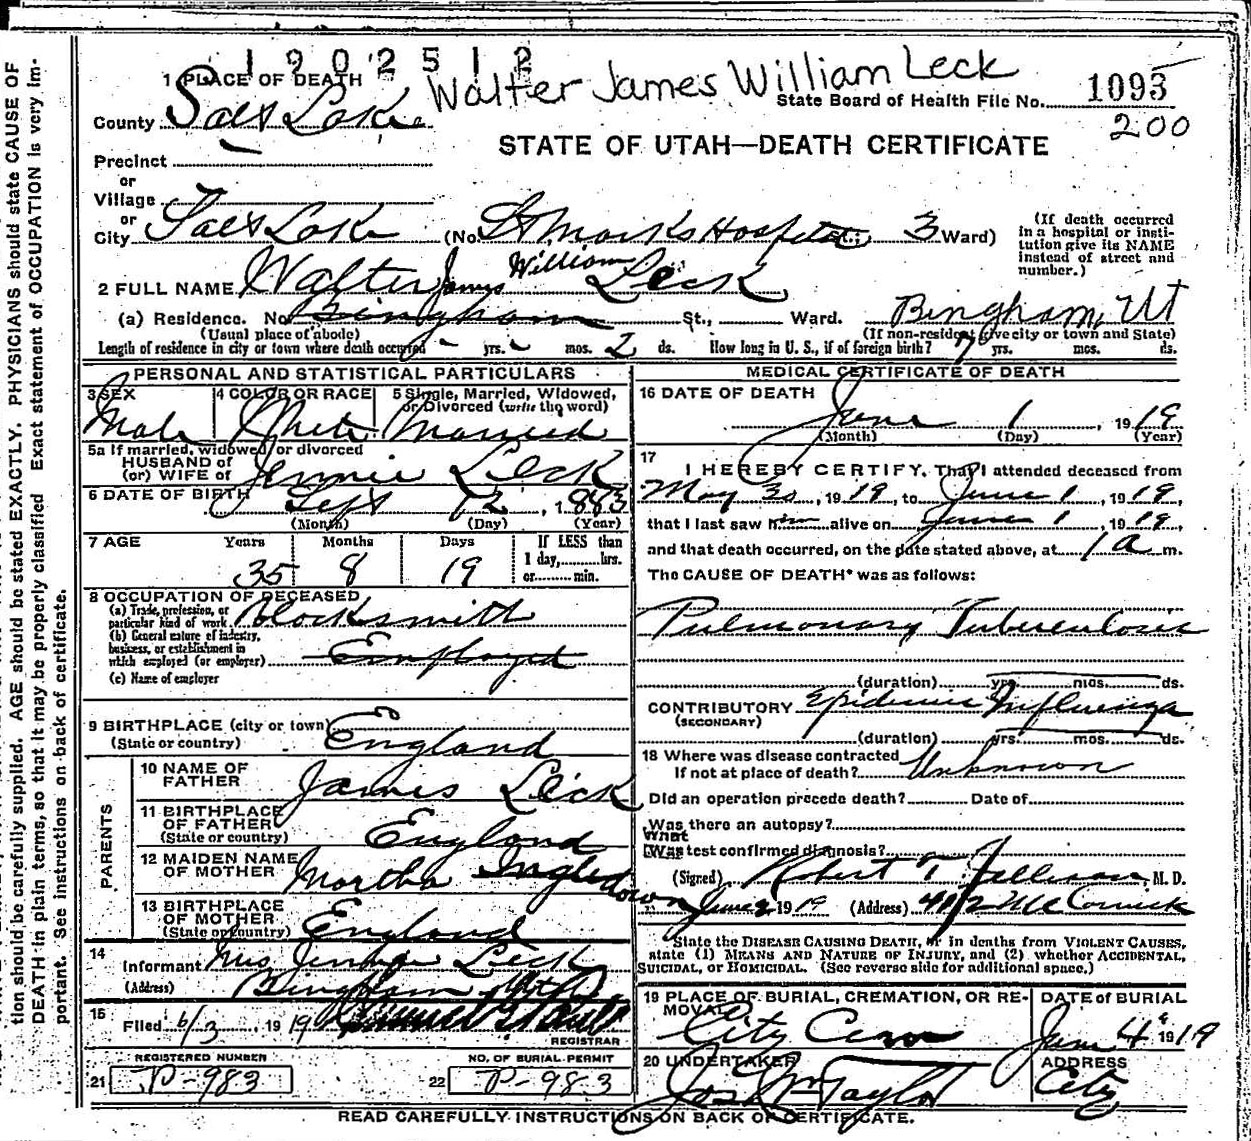 1902512
Walter James William Leck
1 PLACE OF DEATH
State Board of Health File No. 1095
200
County Salt Lake
STATE OF UTAH—DEATH CERTIFICATE
Precinct
or
Village
or
City Salt Lake (No. St Marks Hospital; 3 Ward)
(If death occurred in a hospital or institution give its NAME instead of street and number.)
2 FULL NAME Walter James William Leck
(a) Residence. No. Bingham St., Ward. Bingham, Ut
(Usual place of abode) (If non-resident give city or town and State)
Length of residence in city or town where death occurred - yrs. - mos. 2 ds. How long in U. S., if of foreign birth? 7 yrs. mos. ds.
PERSONAL AND STATISTICAL PARTICULARS
3 SEX Male
4 COLOR OR RACE White
5 Single, Married, Widowed, or Divorced (write the word) Married
5a If married, widowed, or divorced
HUSBAND of
(or) WIFE of Jennie Leck
6 DATE OF BIRTH Sept 12, 1883
(Month) (Day) (Year)
7 AGE Years Months Days If LESS than
35 8 19 1 day, hrs.
or min.
8 OCCUPATION OF DECEASED
(a) Trade, profession, or particular kind of work Blocksmith
(b) General nature of industry, business, or establishment in which employed (or employer) Employed
(c) Name of employer
9 BIRTHPLACE (city or town)
(State or country) England
PARENTS
10 NAME OF FATHER James Leck
11 BIRTHPLACE OF FATHER
(State or country) England
12 MAIDEN NAME OF MOTHER Martha Ingledown
13 BIRTHPLACE OF MOTHER
(State or country) England
14
Informant Mrs Jennie Leck
(Address) Bingham Utah
15
Filed 6/3, 1919
REGISTRAR
REGISTERED NUMBER
21 P-983
NO. OF BURIAL PERMIT
22 P-983
MEDICAL CERTIFICATE OF DEATH
16 DATE OF DEATH
June 1, 1919
(Month) (Day) (Year)
17
I HEREBY CERTIFY, That I attended deceased from
May 30, 1919, to June 1, 1919,
that I last saw him alive on June 1, 1919,
and that death occurred, on the date stated above, at 1 a m.
The CAUSE OF DEATH* was as follows:
Pulmonary Tuberculosis
(duration) yrs. mos. ds.
CONTRIBUTORY Epidemic Influenza
(SECONDARY)
(duration) yrs. mos. ds.
18 Where was disease contracted
If not at place of death? Unknown
Did an operation precede death? Date of
Was there an autopsy?
What
Was test confirmed diagnosis?
(Signed) Robert T Jellison, M. D.
June 2 1919 (Address) McCornick
State the DISEASE CAUSING DEATH, or in deaths from VIOLENT CAUSES,
state (1) MEANS AND NATURE OF INJURY, and (2) whether ACCIDENTAL,
SUICIDAL, OR HOMICIDAL. (See reverse side for additional space.)
19 PLACE OF BURIAL, CREMATION, OR REMOVAL DATE of BURIAL
City Cem June 4 1919
20 UNDERTAKER ADDRESS
Jos Wm Taylor City
READ CAREFULLY INSTRUCTIONS ON BACK OF CERTIFICATE.
tion should be carefully supplied. AGE should be stated EXACTLY. PHYSICIANS should state CAUSE OF
DEATH in plain terms, so that it may be properly classified Exact statement of OCCUPATION is very im-
portant. See instructions on back of certificate.